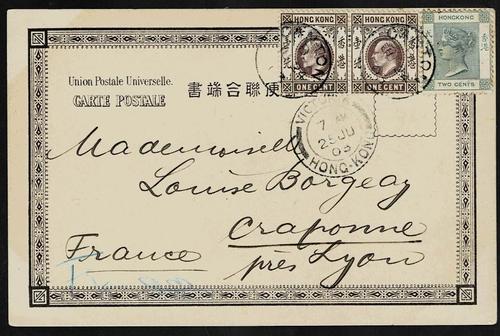 HONG KONG
HONG KONG
HONGKONG
香港
香港
香港
ONE CENT
ONE CENT
TWO CENTS
Union Postale Universelle.
CARTE POSTALE
書端合聯便
VICTORIA
7 AM
25 JU
03
HONG-KONG
Mademoiselle
Louise Borgeay
Craponne
près Lyon
France